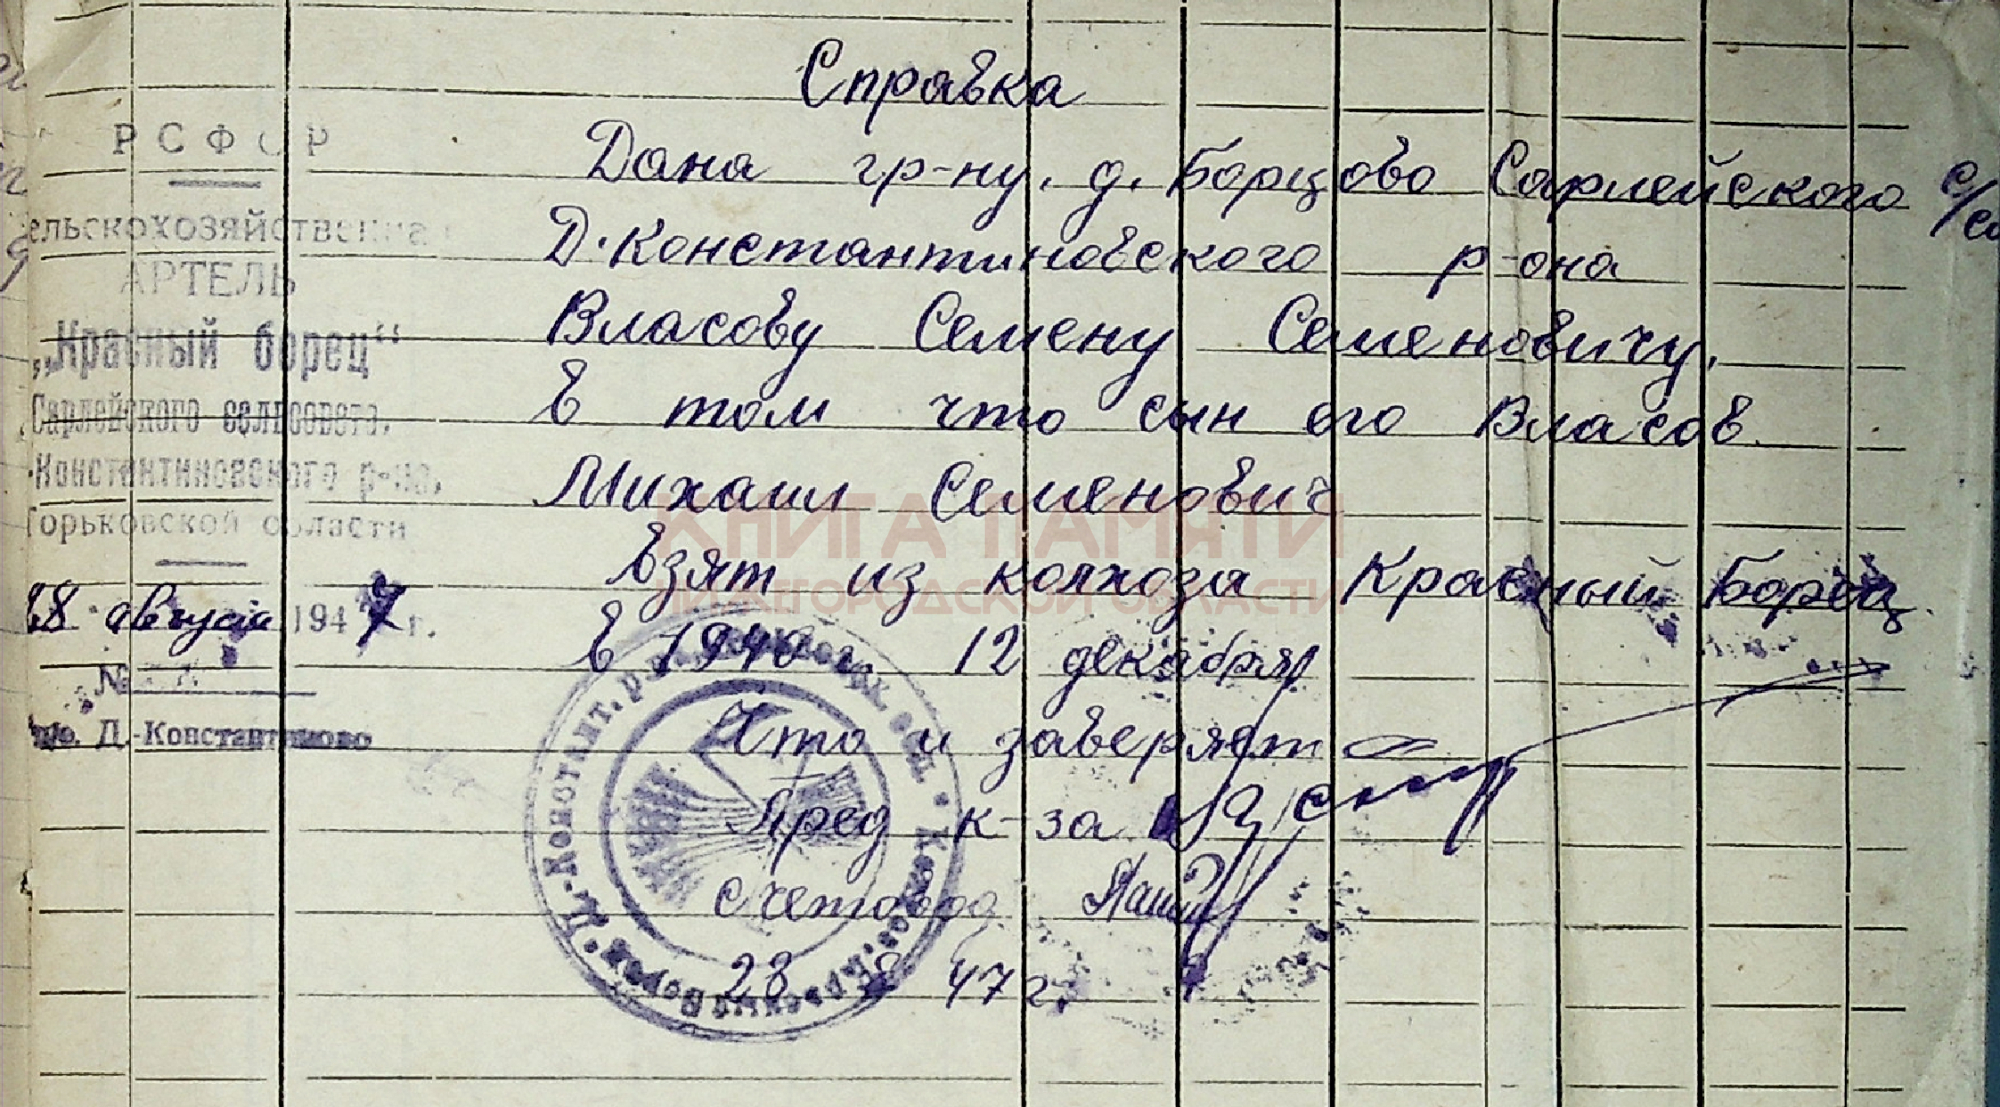 Справка
РСФСР
ельскохозяйственная
АРТЕЛЬ
„Красный борец“
Сарлейского сельсовета,
Константиновского р-на,
Горьковской области
28 августа 1947 г.
№
п/о. Д.-Константиново
Дана гр-ну. д. Борцово Сарлейского с/со
Д. Константиновского р-она
Власову Семену Семеновичу.
в том что сын его Власов
Михаил Семенович
взят из колхоза Красный Борец
в 1940 г. 12 декабря
Что и заверяет
Пред к-за
счетовод
28 8 47 г.
Д.-Констант. р. Горьк. обл. Колхоз Красный Борец
КНИГА ПАМЯТИ
НИЖЕГОРОДСКОЙ ОБЛАСТИ